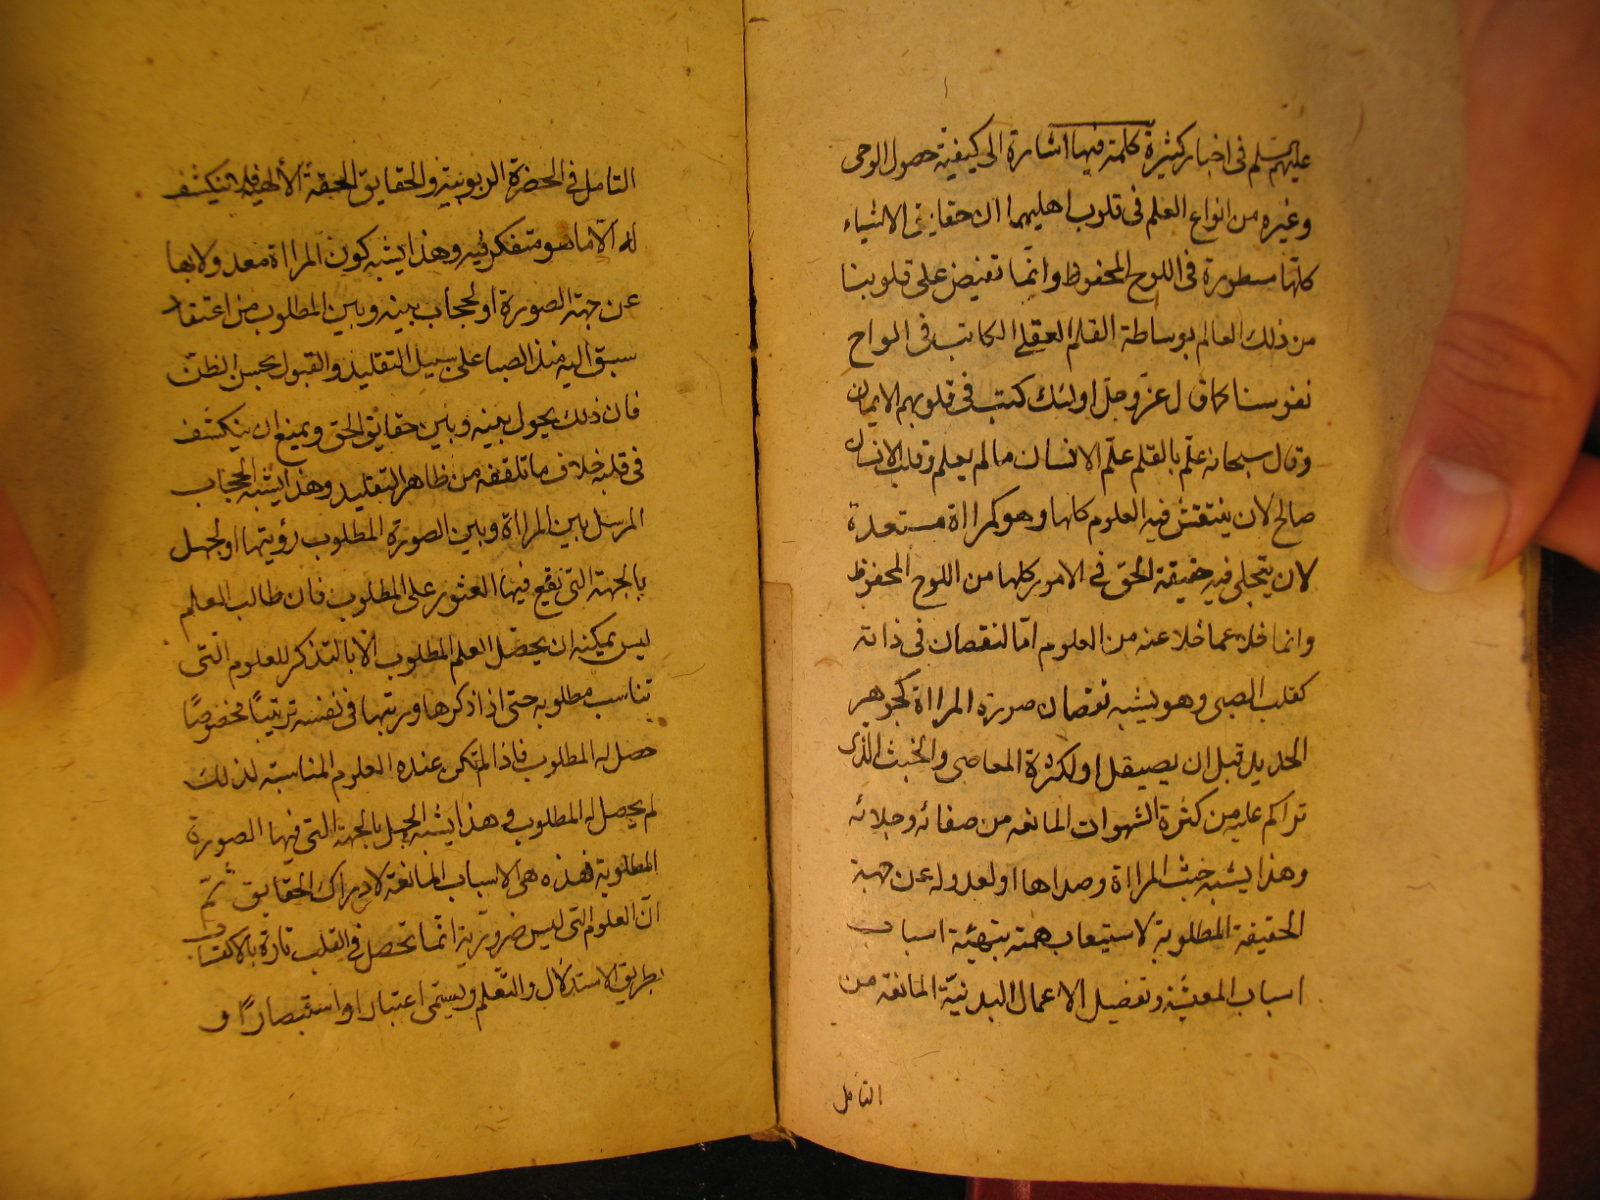 عليهم السلم فى اخبار كثيرة كلمة فيها اشارة الى كيفية حصول الوحى
وغيره من انواع العلم فى قلوب اهليهما ان حقايق الاشياء
كلها مسطورة فى اللوح المحفوظ وانما تفيض على قلوبنا
من ذلك العالم بوساطة القلم العقلى الكاتب فى الواح
نفوسنا كما قال عز وجل اولئك كتب فى قلوبهم الايمان
وقال سبحانه علّم بالقلم علّم الانسان مالم يعلم وقلب الانسان
صالح لان ينتقش فيه العلوم كلها وهو كمرااة مستعدة
لان يتجلى فيه حقيقة الحق فى الامور كلها من اللوح المحفوظ
وانما خلا عما خلا عنه من العلوم امّا لنقصان فى ذاته
كقلب الصبى وهو يشبه نقصان صورة المرااة كجوهر
الحديد قبل ان يصيقل او لكثرة المعاصى والخبث الذى
تراكم عليه من كثرة الشهوات المانعه من صفائه وجلائه
وهذا يشبه خبث المرااة وصداها او لعدوله عن جهة
الحقيقة المطلوبة لاستيعاب همته بتهيئة اسباب
اسباب المعيشة وتفصيل الاعمال البدنيّة المانعة من
التامل
التامل فى الحضرة الربوبية والحقايق الحقة الألهية فلا تنكشف
له الّا ما هو متفكر فيه وهذا يشبه كون المرااة معدولا بها
عن جهة الصورة او لحجاب بينه وبين المطلوب من اعتقاد
سبق اليه منذ الصبا على سبيل التقليد والقبول بحسن الظن
فان ذلك يحول بينه وبين حقايق الحق ويمنع ان ينكشف
فى قلبه خلاف ما تلقفه من ظاهر التقليد وهذا يشبه الحجاب
المرسل بين المرااة وبين الصورة المطلوب رؤيتها او لجهل
بالجهة التى يقع فيها العثور على المطلوب فان طالب العلم
ليس يمكنه ان يحصّل العلم المطلوب الا بالتذكر للعلوم التى
تناسب مطلوبه حتى اذا ذكرها ورتبها فى نفسه ترتيبًا مخصوصًا
حصل له المطلوب فاذا لم تكن عنده العلوم المناسبه لذلك
لم يحصل له المطلوب وهذا يشبه الجهل بالجهة التى فيها الصورة
المطلوبة فهذه هى الاسباب المانعة لادراك الحقايق ثمّ
انّ العلوم التى ليس ضرورية انّما تحصل فى القلب تارة بالاكتساب
بطريق الاستدلال والتّعلم ويسمّى اعتبارا واستبصارًا و